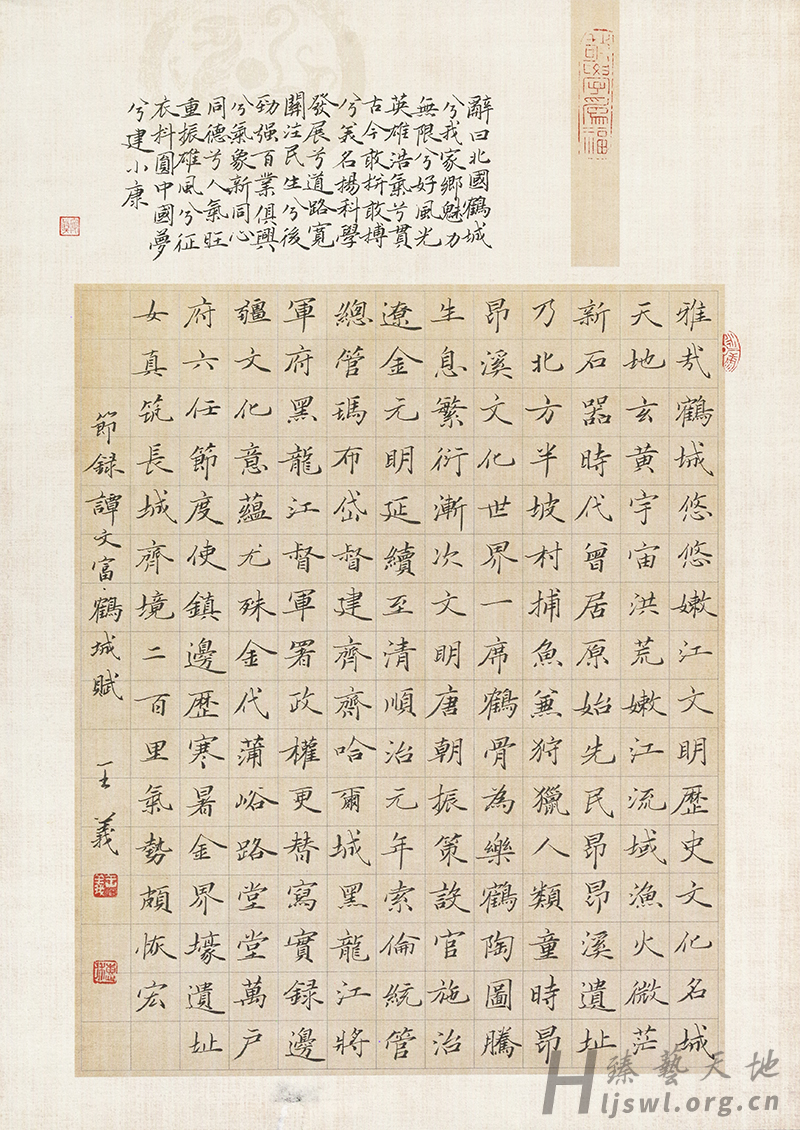 辭曰北國鶴城
兮我家鄉魅力
無限兮好風光
英雄浩氣兮貫
古今敢拚敢搏
兮義名揚科學
發展兮道路寬
關注民生兮後
勁强百業俱興
兮氣象新同心
同德兮人氣旺
重振雄風兮征
衣抖圓中國夢
兮建小康
雅哉鶴城悠悠嫩江文明歷史文化名城
天地玄黃宇宙洪荒嫩江流域漁火微茫
新石器時代曾居原始先民昂昂溪遺址
乃北方半坡村捕魚兼狩獵人類童時昂
昂溪文化世界一席鶴骨為樂鶴陶圖騰
生息繁衍漸次文明唐朝振策設官施治
遼金元明延續至清順治元年索倫統管
總管瑪布岱督建齊齊哈爾城黑龍江將
軍府黑龍江督軍署政權更替寫實録邊
疆文化意蘊尤殊金代蒲峪路堂堂萬戶
府六任節度使鎮邊歷寒暑金界壕遺址
女真筑長城齊境二百里氣勢頗恢宏
節録譚文富·鶴城賦 王義
臻藝天地
Hljswl.org.cn